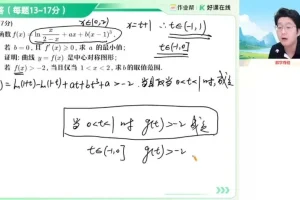 答(每题13~17分)
作业帮 | K 好课在线
x∈(0,2)
x=t+1 ∴t∈(-1,1)
t∈(-1,0]
函数 f(x)=ln x/(2-x)+ax+b(x-1)³.
若 b=0, 且 f′(x)≥0, 求 a 的最小值;
证明: 曲线 y=f(x) 是中心对称图形;
若 f(x)>-2, 当且仅当 1<x<2, 求 b 的取值范围.
=ln(1+t)-ln(1-t)+at+bt³+a>-2. 当且仅当 0<t<1 时, 成立
当 0<t<1 时 g(t)>-2 成立
t∈(-1,0] g(t)>-2